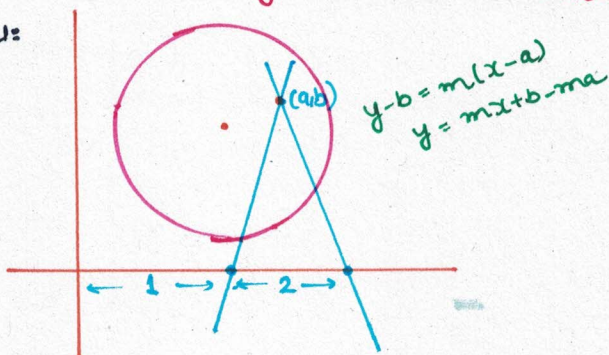 (a,b)
y-b = m(x-a)
y = mx+b-ma
← 1 → ← 2 →